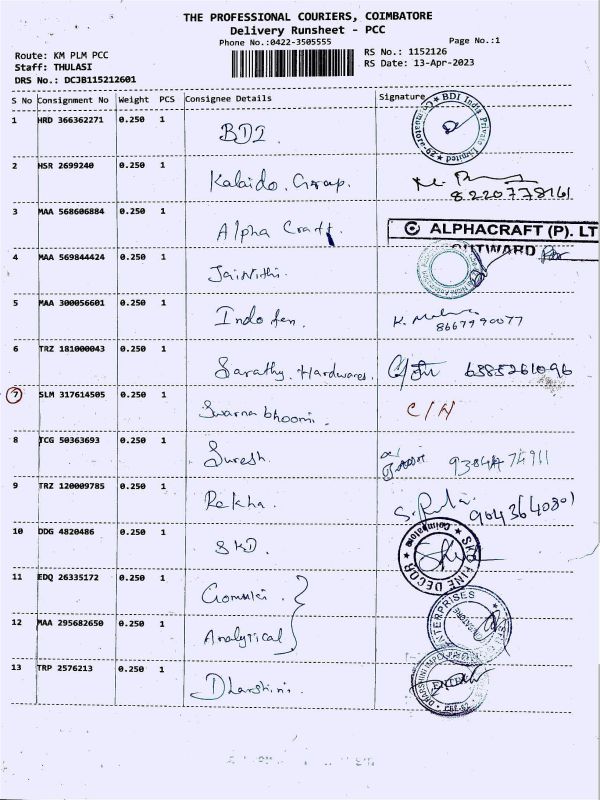 THE PROFESSIONAL COURIERS, COIMBATORE
Delivery Runsheet - PCC
Phone No.:0422-3505555
Page No.:1
Route: KM PLM PCC
Staff: THULASI
DRS No.: DCJB115212601
RS No.: 1152126
RS Date: 13-Apr-2023
S No Consignment No Weight PCS Consignee Details Signature
1 HRD 366362271 0.250 1 BDI
BDI India Private Limited
2 HSR 2699240 0.250 1 Kalaido. Group.
8220778161
3 MAA 568606884 0.250 1 Alpha Craft
ALPHACRAFT (P). LT
OUTWARD
4 MAA 569844424 0.250 1 Jai Nithi.
5 MAA 300056601 0.250 1 Indo fen.
8667990077
6 TRZ 181000043 0.250 1 Sarathy. Hardwares.
6385261096
7 SLM 317614505 0.250 1 Swarna bhoomi. C/H
8 TCG 50363693 0.250 1 Suresh.
9384474911
9 TRZ 120009785 0.250 1 Rekha.
9043640801
10 DDG 4820486 0.250 1 SKD.
SKD FINE DECOR Coimbatore
11 EDQ 26335172 0.250 1
ENTERPRISES
12 MAA 295682650 0.250 1 Analytical
13 TRP 2576213 0.250 1 Dharshini.